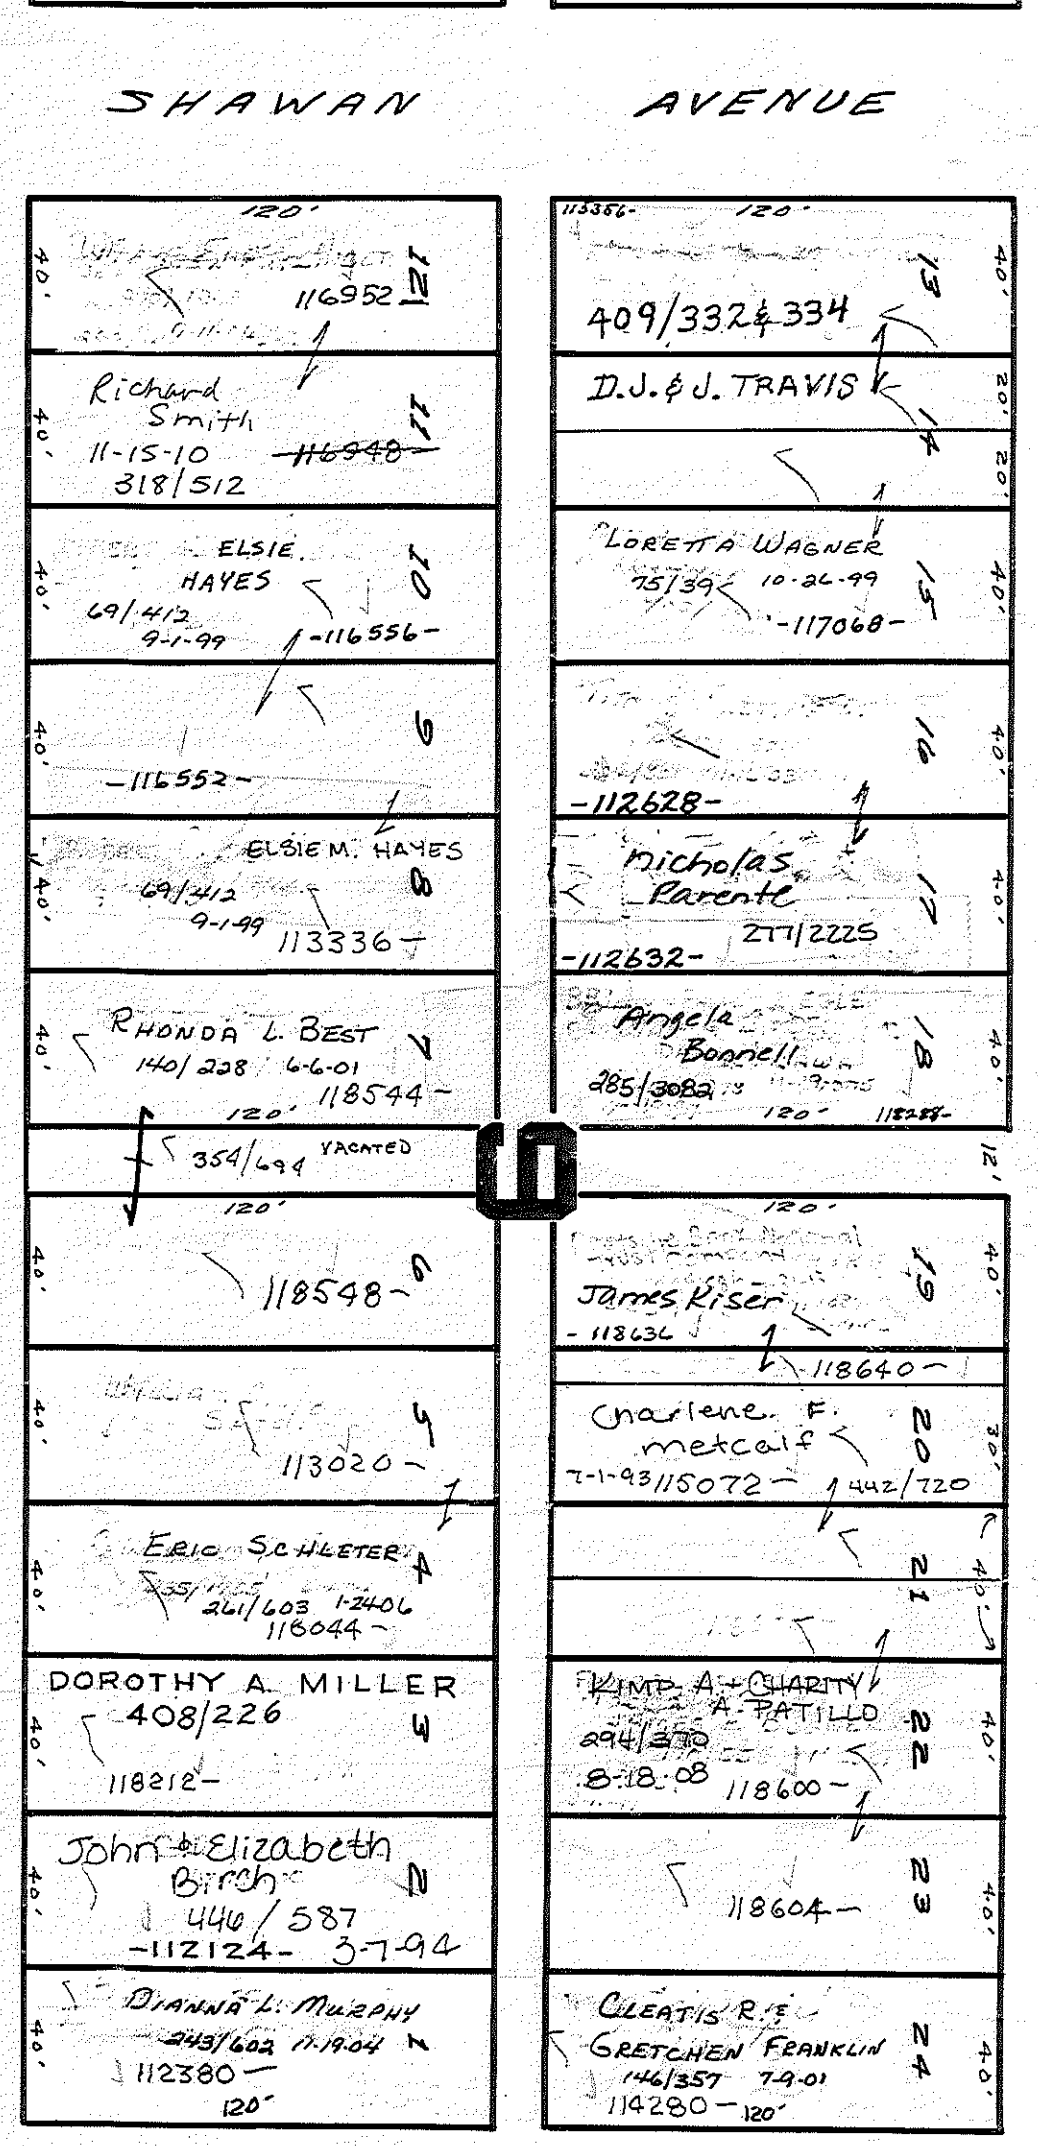 SHAWAN AVENUE
120'
40'
12
116952
40'
Richard
Smith
11
11-15-10 -116948-
318/512
40'
ELSIE
HAYES
10
69/412
9-1-99 -116556-
40'
9
-116552-
40'
ELSIE M. HAYES
8
69/412
9-1-99
113336-
40'
RHONDA L. BEST
7
140/228 6-6-01
118544-
120'
354/694 VACATED
120'
40'
6
118548-
40'
5
113020-
40'
ERIC SCHLETER
4
261/603 1-24-06
118044-
DOROTHY A. MILLER
408/226
3
40'
118212-
John & Elizabeth
Birch
2
40'
446/587
-112124- 3-7-94
DIANNA L. MURPHY
40'
243/602 11-19-04 1
112380-
120'
115356- 120'
40'
13
409/332 & 334
D.J. & J. TRAVIS
20'
14
20'
LORETTA WAGNER
75/39 10-26-99
15
40'
-117068-
16
40'
-112628-
Nicholas
Parente
17
40'
277/2225
-112632-
Angela
Bonnell
18
40'
285/3082
120' 118288-
9
12'
120'
40'
19
James Kiser
- 118636
118640-
Charlene F.
metcalf
20
30'
7-1-93 115072- 442/720
21
40'
KIMP A + CHARITY
A. PATILLO
294/370
22
40'
8-18-08 118600-
23
118604-
40'
CLEATIS R. &
GRETCHEN FRANKLIN
24
40'
146/357 7-9-01
114280- 120'